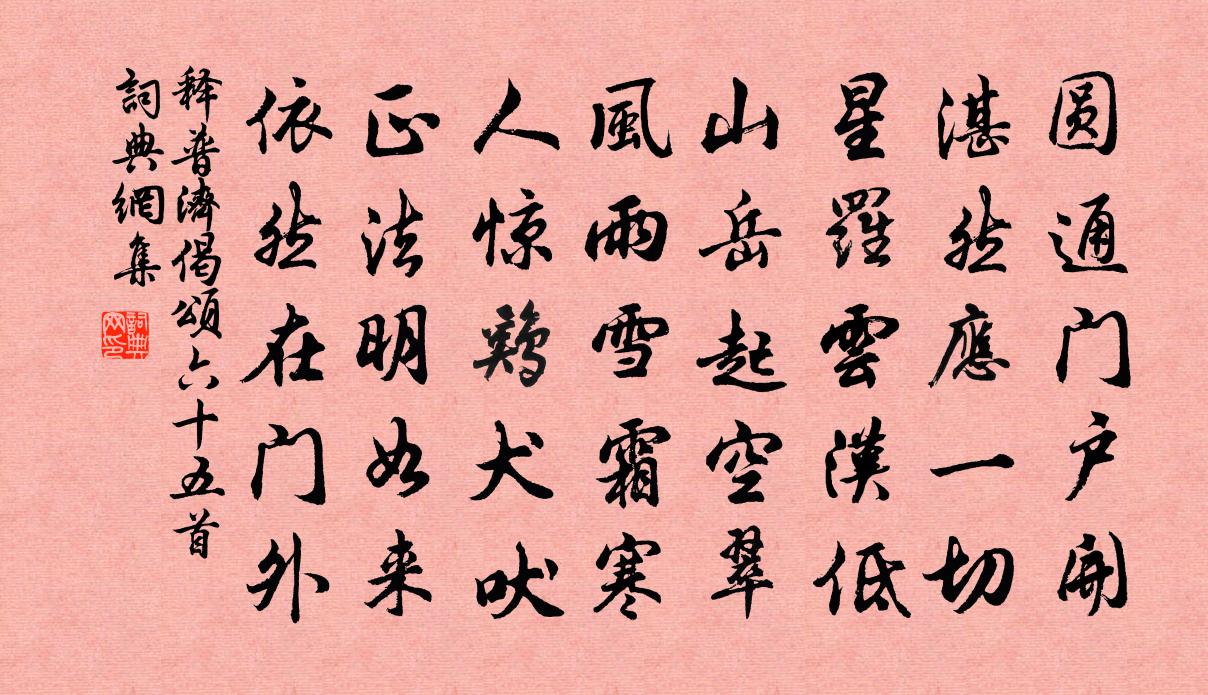 圆通门户開
湛然應一切
星羅雲漢低
山岳起空翠
風雨雪霜寒
人惊鶏犬吠
正法明如来
依然在门外
释普濟偈頌六十五首
詞典網集
詞典网印